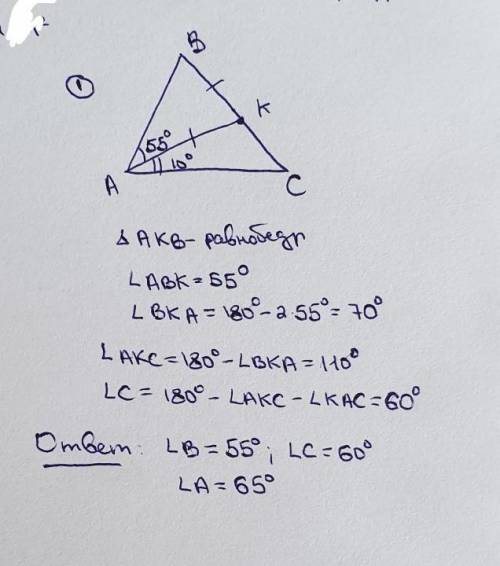 ①
B
K
55°
10°
A
C
Δ AKB - равнобедр
∠ABK = 55°
∠BKA = 180° - 2·55° = 70°
∠AKC = 180° - ∠BKA = 110°
∠C = 180° - ∠AKC - ∠KAC = 60°
Ответ: ∠B = 55°; ∠C = 60°
∠A = 65°